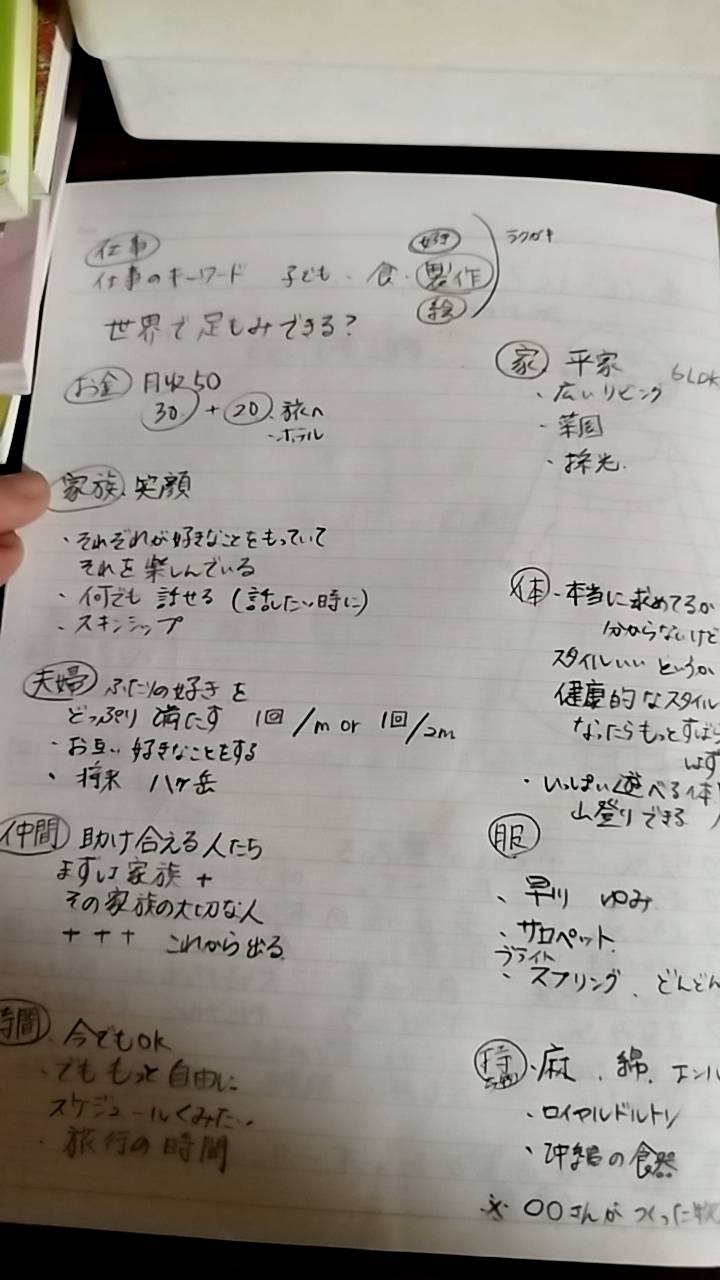 仕事
好き
ラクガキ
仕事のキーワード 子ども・食・製作
絵
世界で足もみできる?
お金 月収50
30 + 20 旅へ
・ホテル
家族 笑顔
・それぞれが好きなことをもっていて
それを楽しんでいる
・何でも 話せる (話したい時に)
・スキンシップ
夫婦 ふたりの好きを
どっぷり 満たす 1回/m or 1回/2m
・お互い 好きなことをする
・将来 八ヶ岳
仲間 助け合える人たち
まずは家族 +
その家族の大切な人
+ + + これから出る
時間 今でもOK
・でももっと自由に
スケジュールくみたい
・旅行の時間
家 平家 6LDK
・広いリビング
・菜園
・採光
体・本当に求めてるか
分からないけど
スタイルいいというか
健康的なスタイル
なったらもっとすばら
はず
・いっぱい遊べる体
山登りできる
服
・早川 ゆみ
・サロペット
ブライト
・スプリング、どんどん
持ち物・麻、綿、
・ロイヤルドルトン
・沖縄の食器
※ 〇〇さんがつくった物